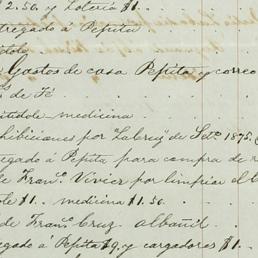 $2.50. y Loteria $1.
tregado á Pepita
titole
Gastos de casa Pepita y correo
de Fé
titole - medicina
hibiciones por "Labrey" de Set.º 1875.
egado á Pepita para compra de r
e Fran.º Vivier por limpiar el
le $1. medicina $1.50.
de Fran.º Cruz albañil
egado á Pepita $9. y cargadores $1.